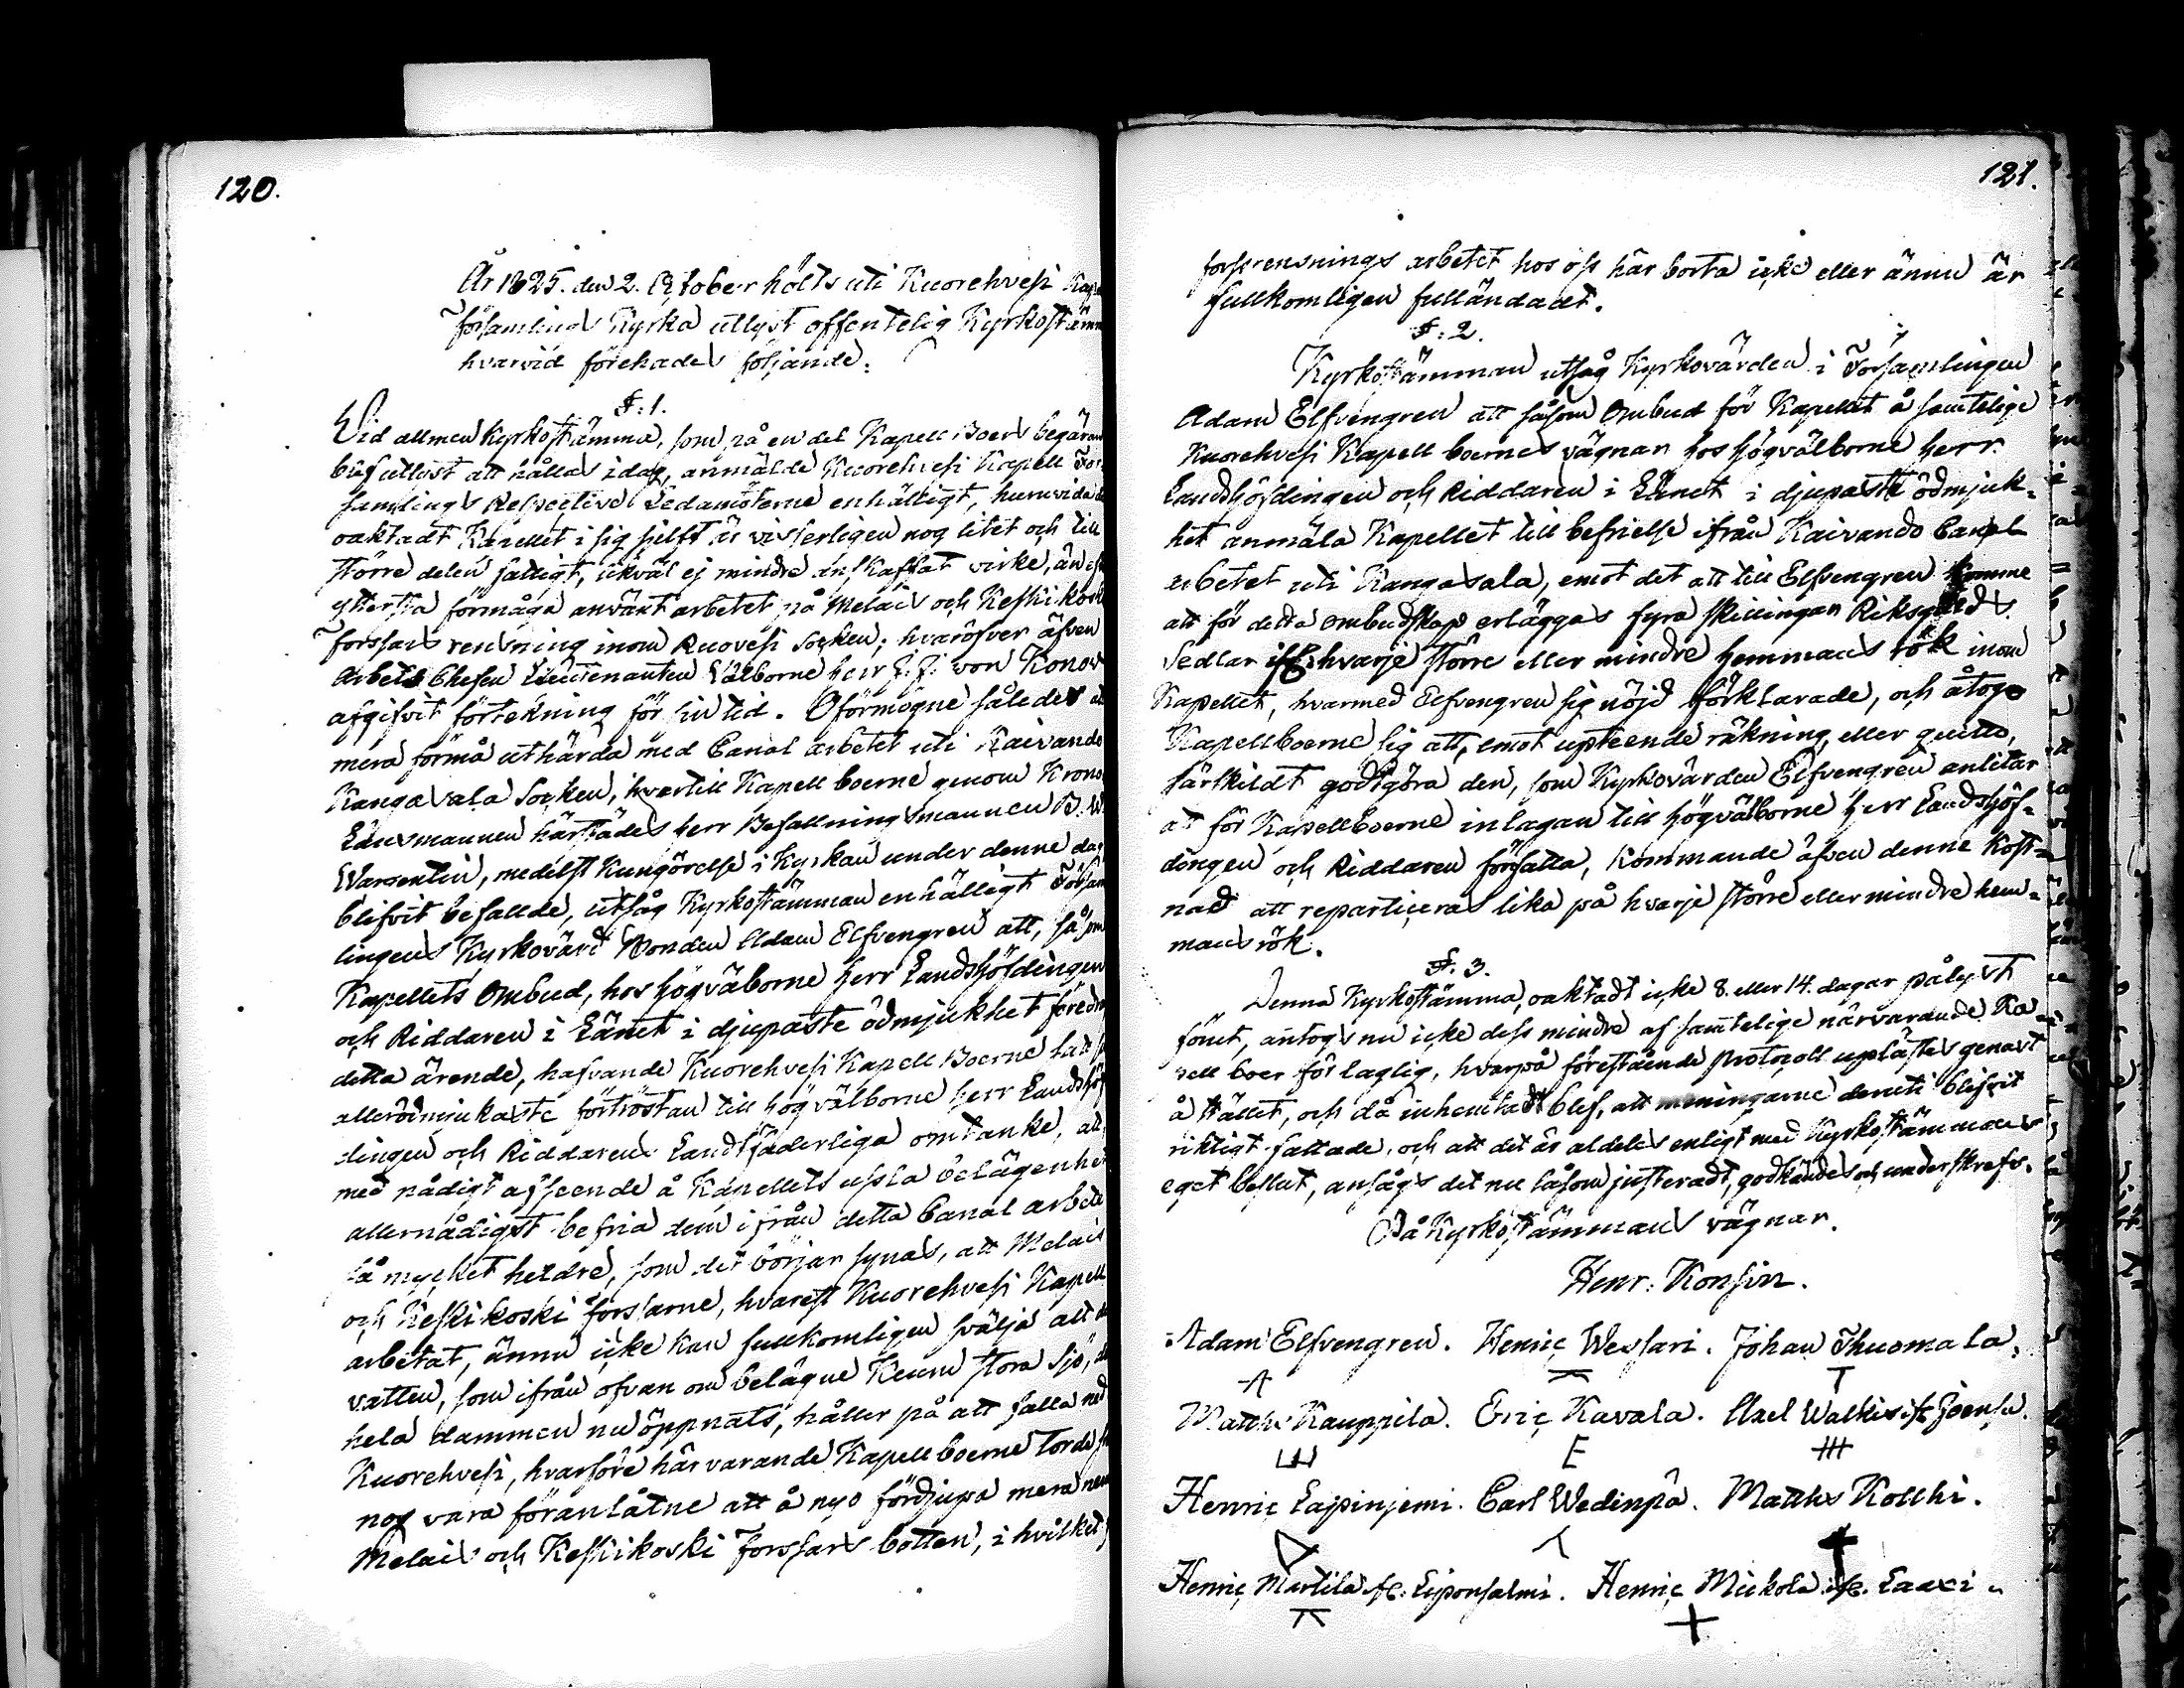 120.
År 1825. den 2. October hölts uti Kuorehvesi Kap
församlings Kyrka utlyst offentelig Kyrkostäm
hvarvid förehades följande.
§: 1.
Vid allmen Kyrkostämma, som på en del Kapell Boers begäran
blif utlyst att hållas idag, anmälde Kuorehvesi Kapell För-
samlings Respective Ledamöterne enhälligt, huruvida de
oaktadt Kapellet i sig sielft är visserligen nog litet och till
större delen fattigt, likväl ej mindre anskaffat virke, än eft
yttersta förmåga använt arbetet på Melais och Keskikoski
forssars rensning inom Ruovesi Socken; hvaröfver äfven
Arbets Chefen Lieutenanten Välborne herr F: F: von Konow
afgifvit förtekning för sin tid. Oförmögne således at
mera förmå uthärda med Canal arbetet uti Kaivando
Kangasala Socken, hvartill Kapell boerne genom Krono
Länsmannen härstädes herr Befallningsmannen B. W.
Warsentin, medelst Kungörelse i Kyrkan under denne dag
blifvit befallde, utsåg Kyrkostämman enhälligt Försam
lingens Kyrkovärd Bonden Adam Elfvengren att, såsom
Kapellets Ombud, hos högväborne herr Landshöfdingen
och Riddaren i Länet i djupaste ödmjukhet föredra
detta ärende, hafvande Kuorehvesi Kapell Boerne
allerödmjukaste förtröstan till högvälborne herr Landshöf
dingen och Riddarens Landsfäderliga omtanke, att
med nådigt afseende å Kapellets usla belägenhet
allernådigst befria dem ifrån detta Canal arbete
så mycket heldre, som det börjar synas, att Melais
och Keskikoski forssarne, hvarest Kuorehvesi Kapell
arbetat, ännu icke kan fullkomligen svälja allt de
vatten, som ifrån ofvan om belägne Keuru stora Sjö, de
hela dammen nu öppnats, håller på att falla ned
Kuorehvesi, hvarföre härvarande Kapell boerne torde
nog vara föranlåtne att å nyo fördjupa mera
Melais och Keskikoski forssars botten, i hvilket
121.
forssrensnings arbetet hos oss här borta icke eller ännu är
fullkomligen fulländadt.
§: 2.
Kyrkostämman utsåg Kyrkovärden i Församlingen
Adam Elfvengren att såsom Ombud för Kapellet å samtelige
Kuorehvesi Kapell boernes vägnar hos högvälborne herr
Landshöfdingen och Riddaren i Länet i djupaste ödmjuk-
het anmäla Kapellet till befrielse ifrån Kaivando Canal
arbetet uti Kangasala, emot det att till Elfvengren komme
att för detta ombudskap erläggas fyra skillingar Riksgälds
Sedlar hvarje större eller mindre hemmans rök inom
Kapellet, hvarmed Elfvengren sig nöjd förklarade, och åtogo
Kapellboerne sig att, emot upteende räkning, eller quitto,
särskildt godtgöra den, som Kyrkovärden Elfvengren anlitar
att för Kapellboerne inlagan till högvälborne herr Landshöf-
dingen och Riddaren författa, kommande äfven denne kost-
nad att reparticeras lika på hvarje större eller mindre hem-
mans rök.
§: 3.
Denna Kyrkostämma, oaktadt icke 8. eller 14. dagar pålyst
förut, antogs nu icke dess mindre af samtelige närvarande Ka-
pell boer för laglig, hvarpå förestående Protocoll uplästes genast
å stället, och då inhemtadt blef, att meningarne deruti blifvit
riktigt fattade, och att det är aldeles enligt med Kyrkostämmans
eget beslut, ansågs det nu såsom justeradt, godkändes och underskrefs.
På Kyrkostämmans vägnar.
Henr: Konsin.
Adam Elfvengren. Henric Wessari. Johan Thuomala.
Matths Kauppila. Eric Kavala. Axel Walkis ifr. Joensu.
E
Henric Lapinjemi. Carl Wedinpä. Matths Kolhi.
Henric Martila ifr. Liponsalmi. Henric Mickola ifr. Laaxi